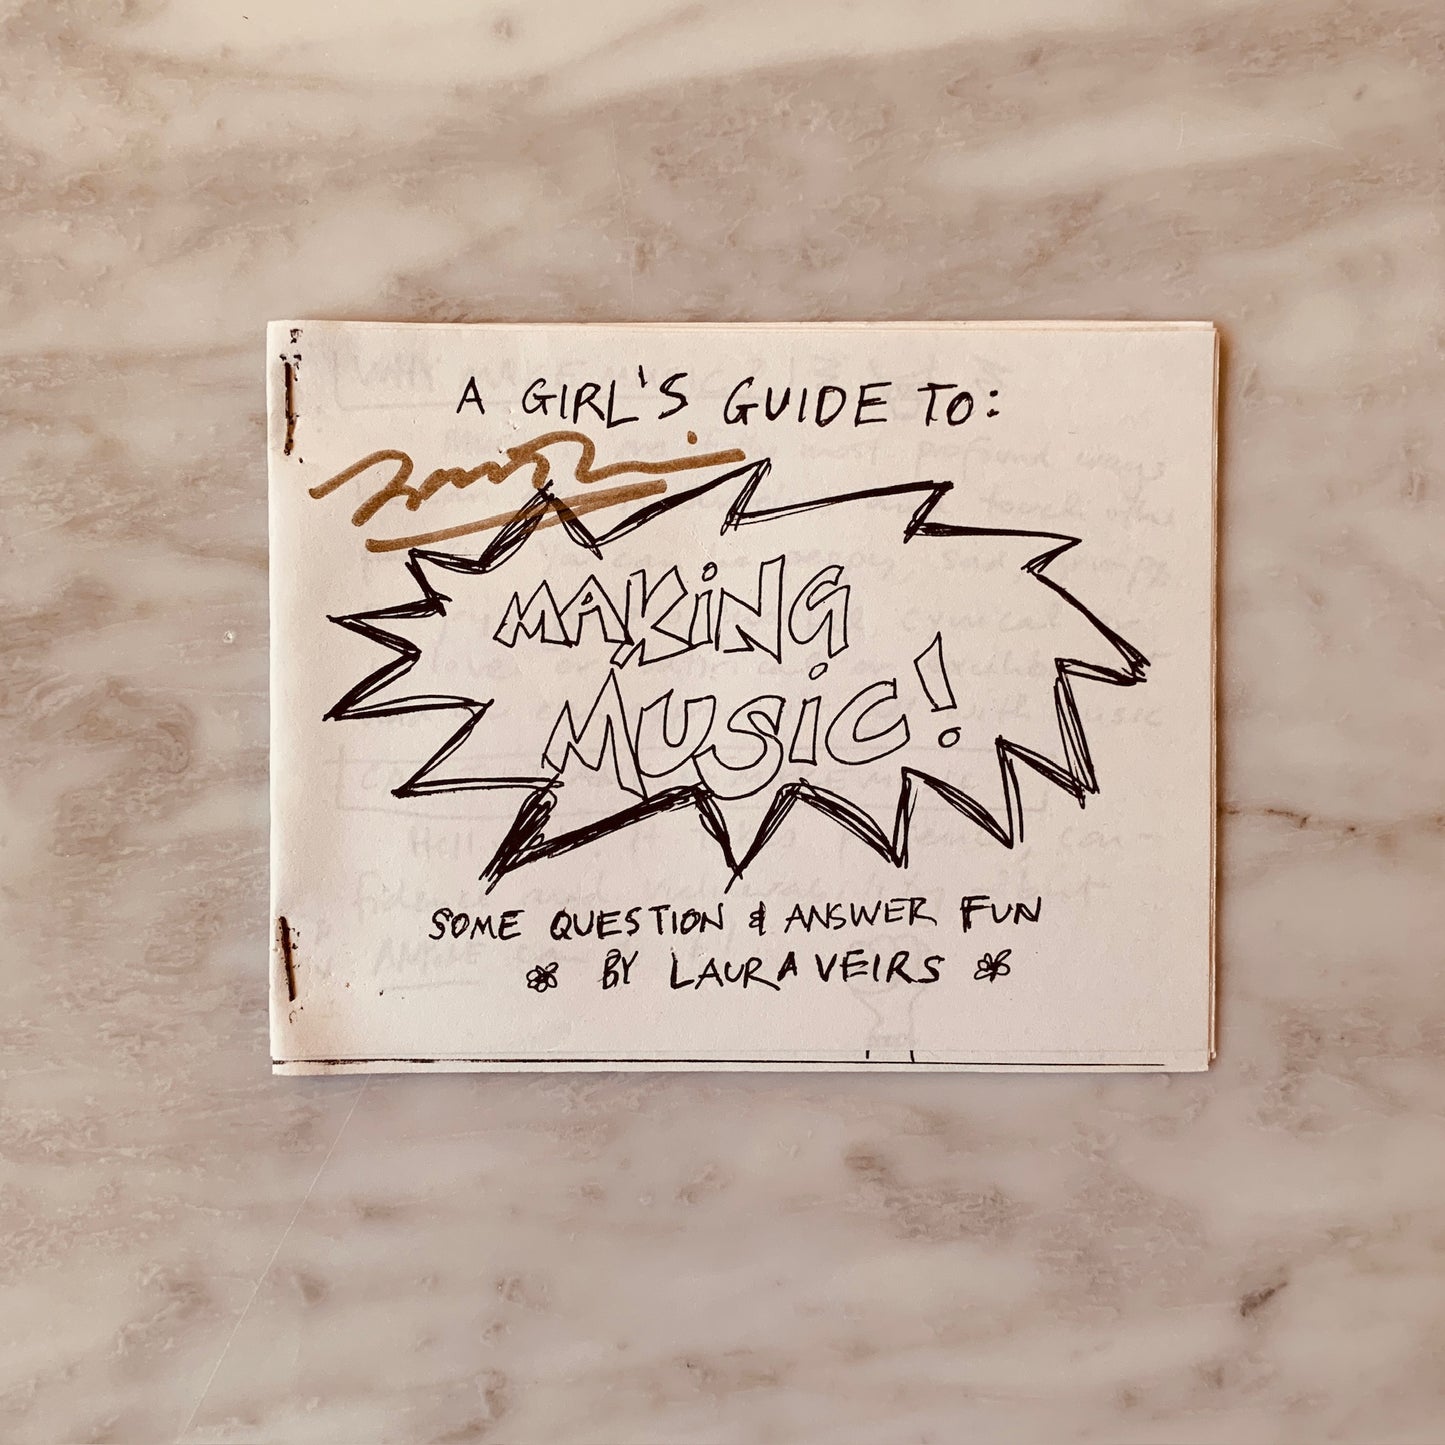 A GIRL'S GUIDE TO:
MAKiNG
MUSiC!
SOME QUESTION & ANSWER FUN
BY LAURA VEIRS